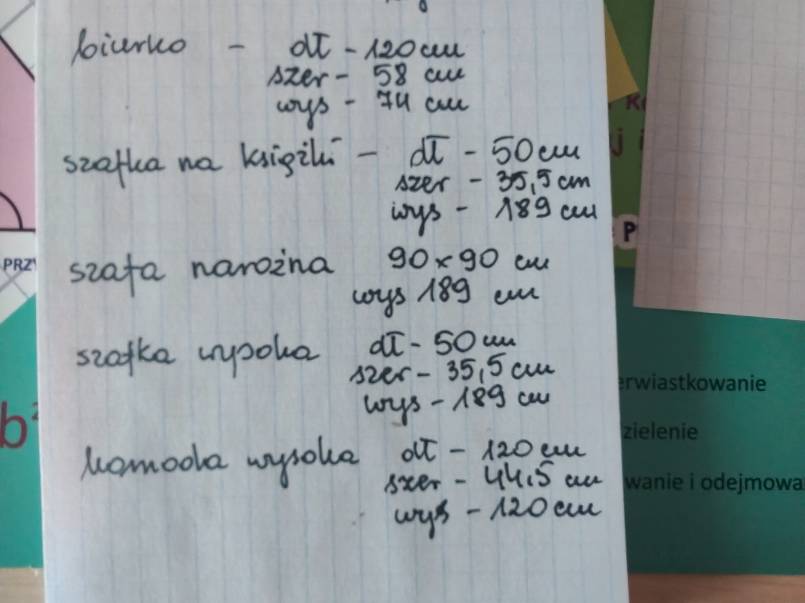 biurko - dł - 120 cm
szer - 58 cm
wys - 74 cm
szafka na książki - dł - 50 cm
szer - 35,5 cm
wys - 189 cm
szafa narożna 90 x 90 cm
wys 189 cm
szafka wysoka dł - 50 cm
szer - 35,5 cm
wys - 189 cm
komoda wysoka dł - 120 cm
szer - 44,5 cm
wys - 120 cm
PRZY
b²
erwiastkowanie
zielenie
wanie i odejmowa